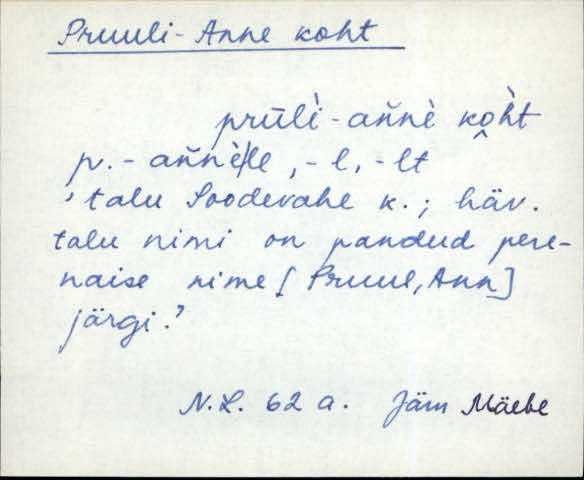 Pruuli-Anne koht
prūlì-ań̀nè kò̭ht
p.-ań̀nèlle, -l, -lt
'talu Soodevahe k.; häv.
talu nimi on pandud pere-
naise nime [Pruul, Ann]
järgi.'
N.L. 62 a. Jäm Mäebe